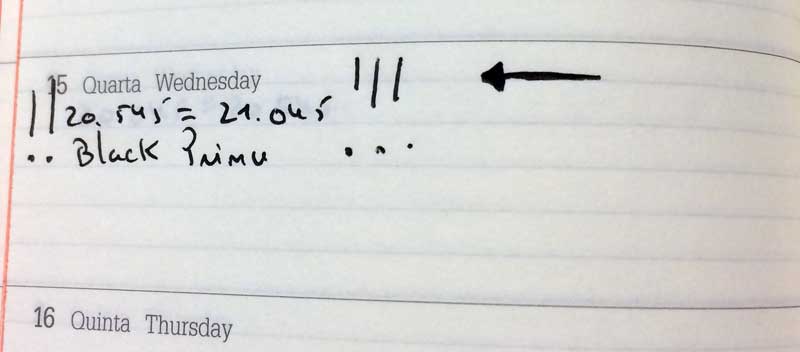 15 Quarta Wednesday !!!
!! 20.545 = 21.045
Black
16 Quinta Thursday